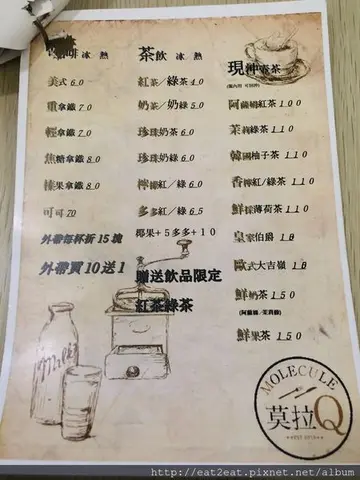 咖啡 冰 熱
美式 6.0
重拿鐵 7.0
輕拿鐵 7.0
焦糖拿鐵 8.0
榛果拿鐵 8.0
可可 7.0
外帶每杯折 15 塊
外帶買 10 送 1
茶飲 冰 熱
紅茶／綠茶 4.0
奶茶／奶綠 5.0
珍珠奶茶 6.0
珍珠奶綠 6.0
檸檬紅／綠 6.0
多多紅／綠 6.5
椰果+5多多+10
贈送飲品限定
紅茶綠茶
現沖壺茶
阿薩姆紅茶 1.0.0
茉莉綠茶 1.1.0
韓國柚子茶 1.1.0
香檸紅/綠茶 1.1.0
鮮採薄荷茶 1.1.0
皇家伯爵
歐式大吉嶺
鮮奶茶 1.5.0
(阿薩姆／茉莉綠)
鮮果茶 1.5.0
Milk
MOLECULE
莫拉Q
http://eat2eat.pixnet.net/album